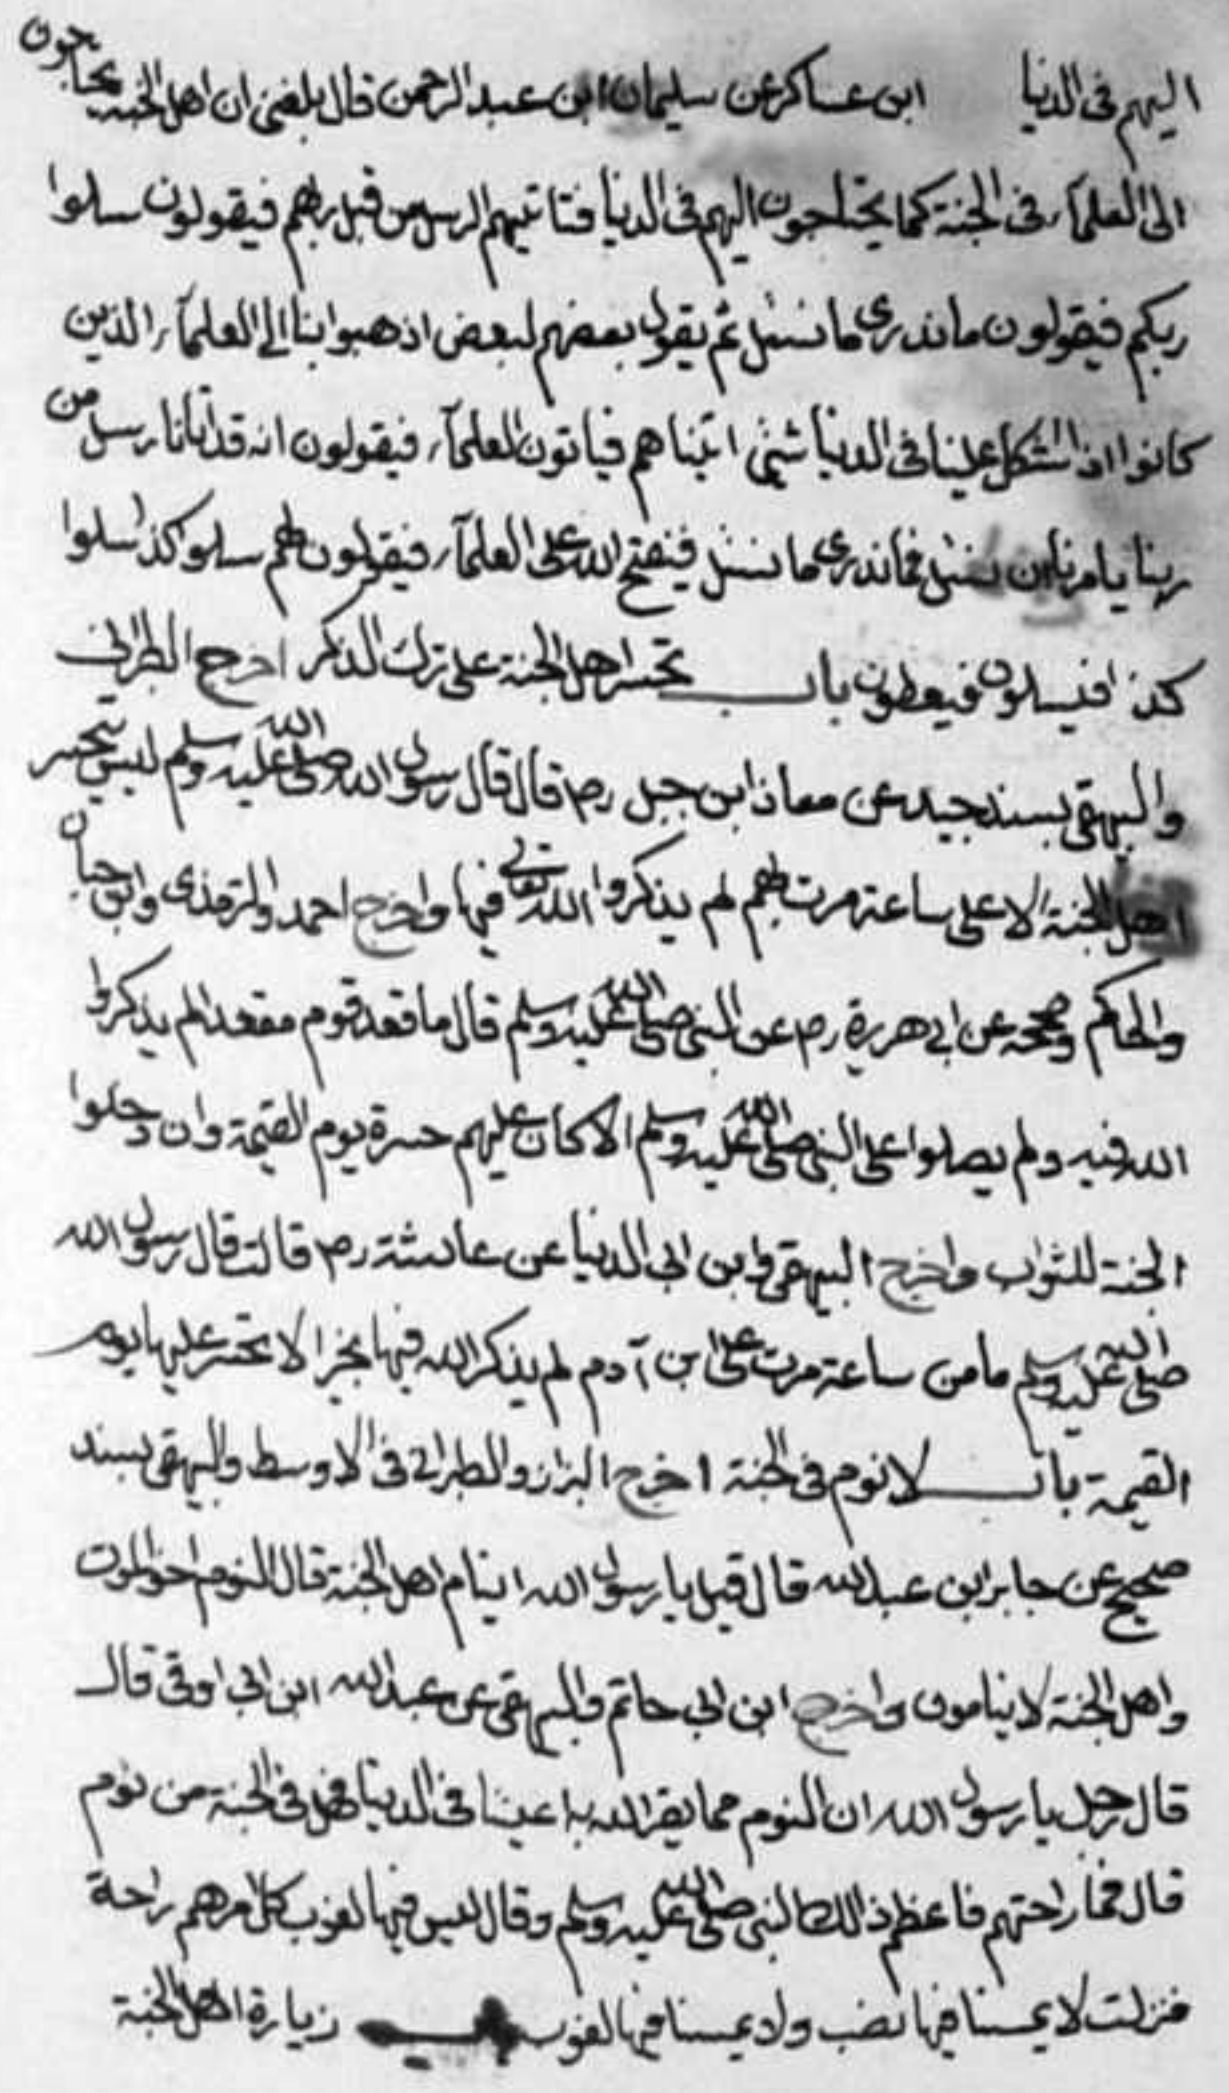 اليهم فى الدنيا ابن عساكر عن سليمان ابن عبد الرحمن قال بلغنى ان اهل الجنة يحتاجون
الى العلمآء فى الجنة كما يحتاجون اليهم فى الدنيا فتاتيهم الرسل من قبل ربهم فيقولون سلوا
ربكم فيقولون ما ندرى ما نسئل ثم يقول بعضهم لبعض اذهبوا بنا الى العلمآء الذين
كانوا اذا اشكل علينا فى الدنيا شئ اتيناهم فياتون العلمآء فيقولون انه قد اتانا رسل من
ربنا يامرنا ان نسئل فما ندرى ما نسئل فيفتح الله على العلمآء فيقولون لهم سلو كذا سلوا
كذا فيسلون فيعطون باب تحسر اهل الجنة على ترك الذكر اخرج الطبرانى
والبيهقى بسند جيد عن معاذ ابن جبل رض قال قال رسول الله صلى الله عليه وسلم ليس يتحسر
اهل الجنة الا على ساعة مرت بهم لم يذكروا الله تعالى فيها واخرج احمد والترمذى وابن حبان
والحاكم وصححه عن ابى هريرة رض عن النبى صلى الله عليه وسلم قال ما قعد قوم مقعدا لم يذكروا
الله فيه ولم يصلوا على النبى صلى الله عليه وسلم الا كان عليهم حسرة يوم القيمة وان دخلوا
الجنة للثواب واخرج البيهقى وابن ابى الدنيا عن عائشة رض قالت قال رسول الله
صلى الله عليه وسلم ما من ساعة مرت على ابن آدم لم يذكر الله فيها بخير الا تحسر عليها يوم
القيمة باب لا نوم فى الجنة اخرج البزار والطبرانى فى الاوسط والبيهقى بسند
صحيح عن جابر ابن عبد الله قال قيل يا رسول الله اينام اهل الجنة قال النوم اخو الموت
واهل الجنة لا ينامون واخرج ابن ابى حاتم والبيهقى عن عبد الله ابن ابى اوفى قال
قال رجل يا رسول الله ان النوم مما يقر الله به اعيننا فى الدنيا فهل فى الجنة من نوم
قال فما راحتهم فاعظم ذالك النبى صلى الله عليه وسلم وقال ليس فيها لغوب كل امرهم راحة
فنزلت لا يمسنا فيها نصب ولا يمسنا فيها لغوب باب زيارة اهل الجنة